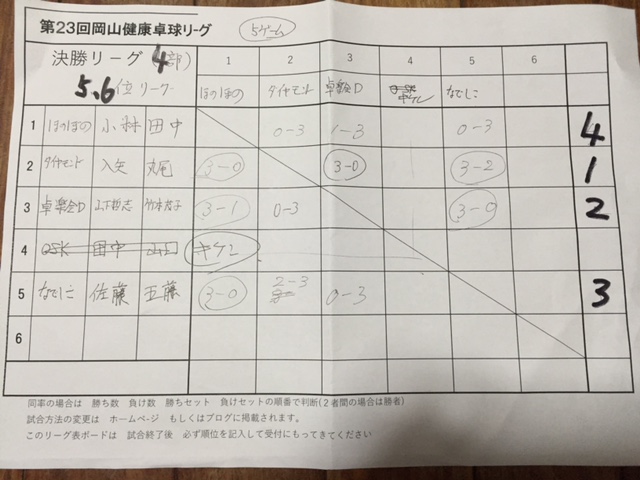 第23回岡山健康卓球リーグ 5ゲーム
決勝リーグ 4部) 1 2 3 4 5 6
5,6位リーグ ほのぼの ダイヤモンド 卓楽会D なでしこ
1 ほのぼの 小林 田中 0-3 1-3 0-3 4
2 ダイヤモンド 入矢 丸尾 3-0 3-0 3-2 1
3 卓楽会D 山下哲志 3-1 0-3 3-0 2
4 OSK 田中 キケン
5 なでしこ 佐藤 五藤 3-0 2-3 0-3 3
6
同率の場合は 勝ち数 負け数 勝ちセット 負けセットの順番で判断(2者間の場合は勝者)
試合方法の変更は ホームページ もしくはブログに掲載されます。
このリーグ表ボードは 試合終了後 必ず順位を記入して受付にもってきてください